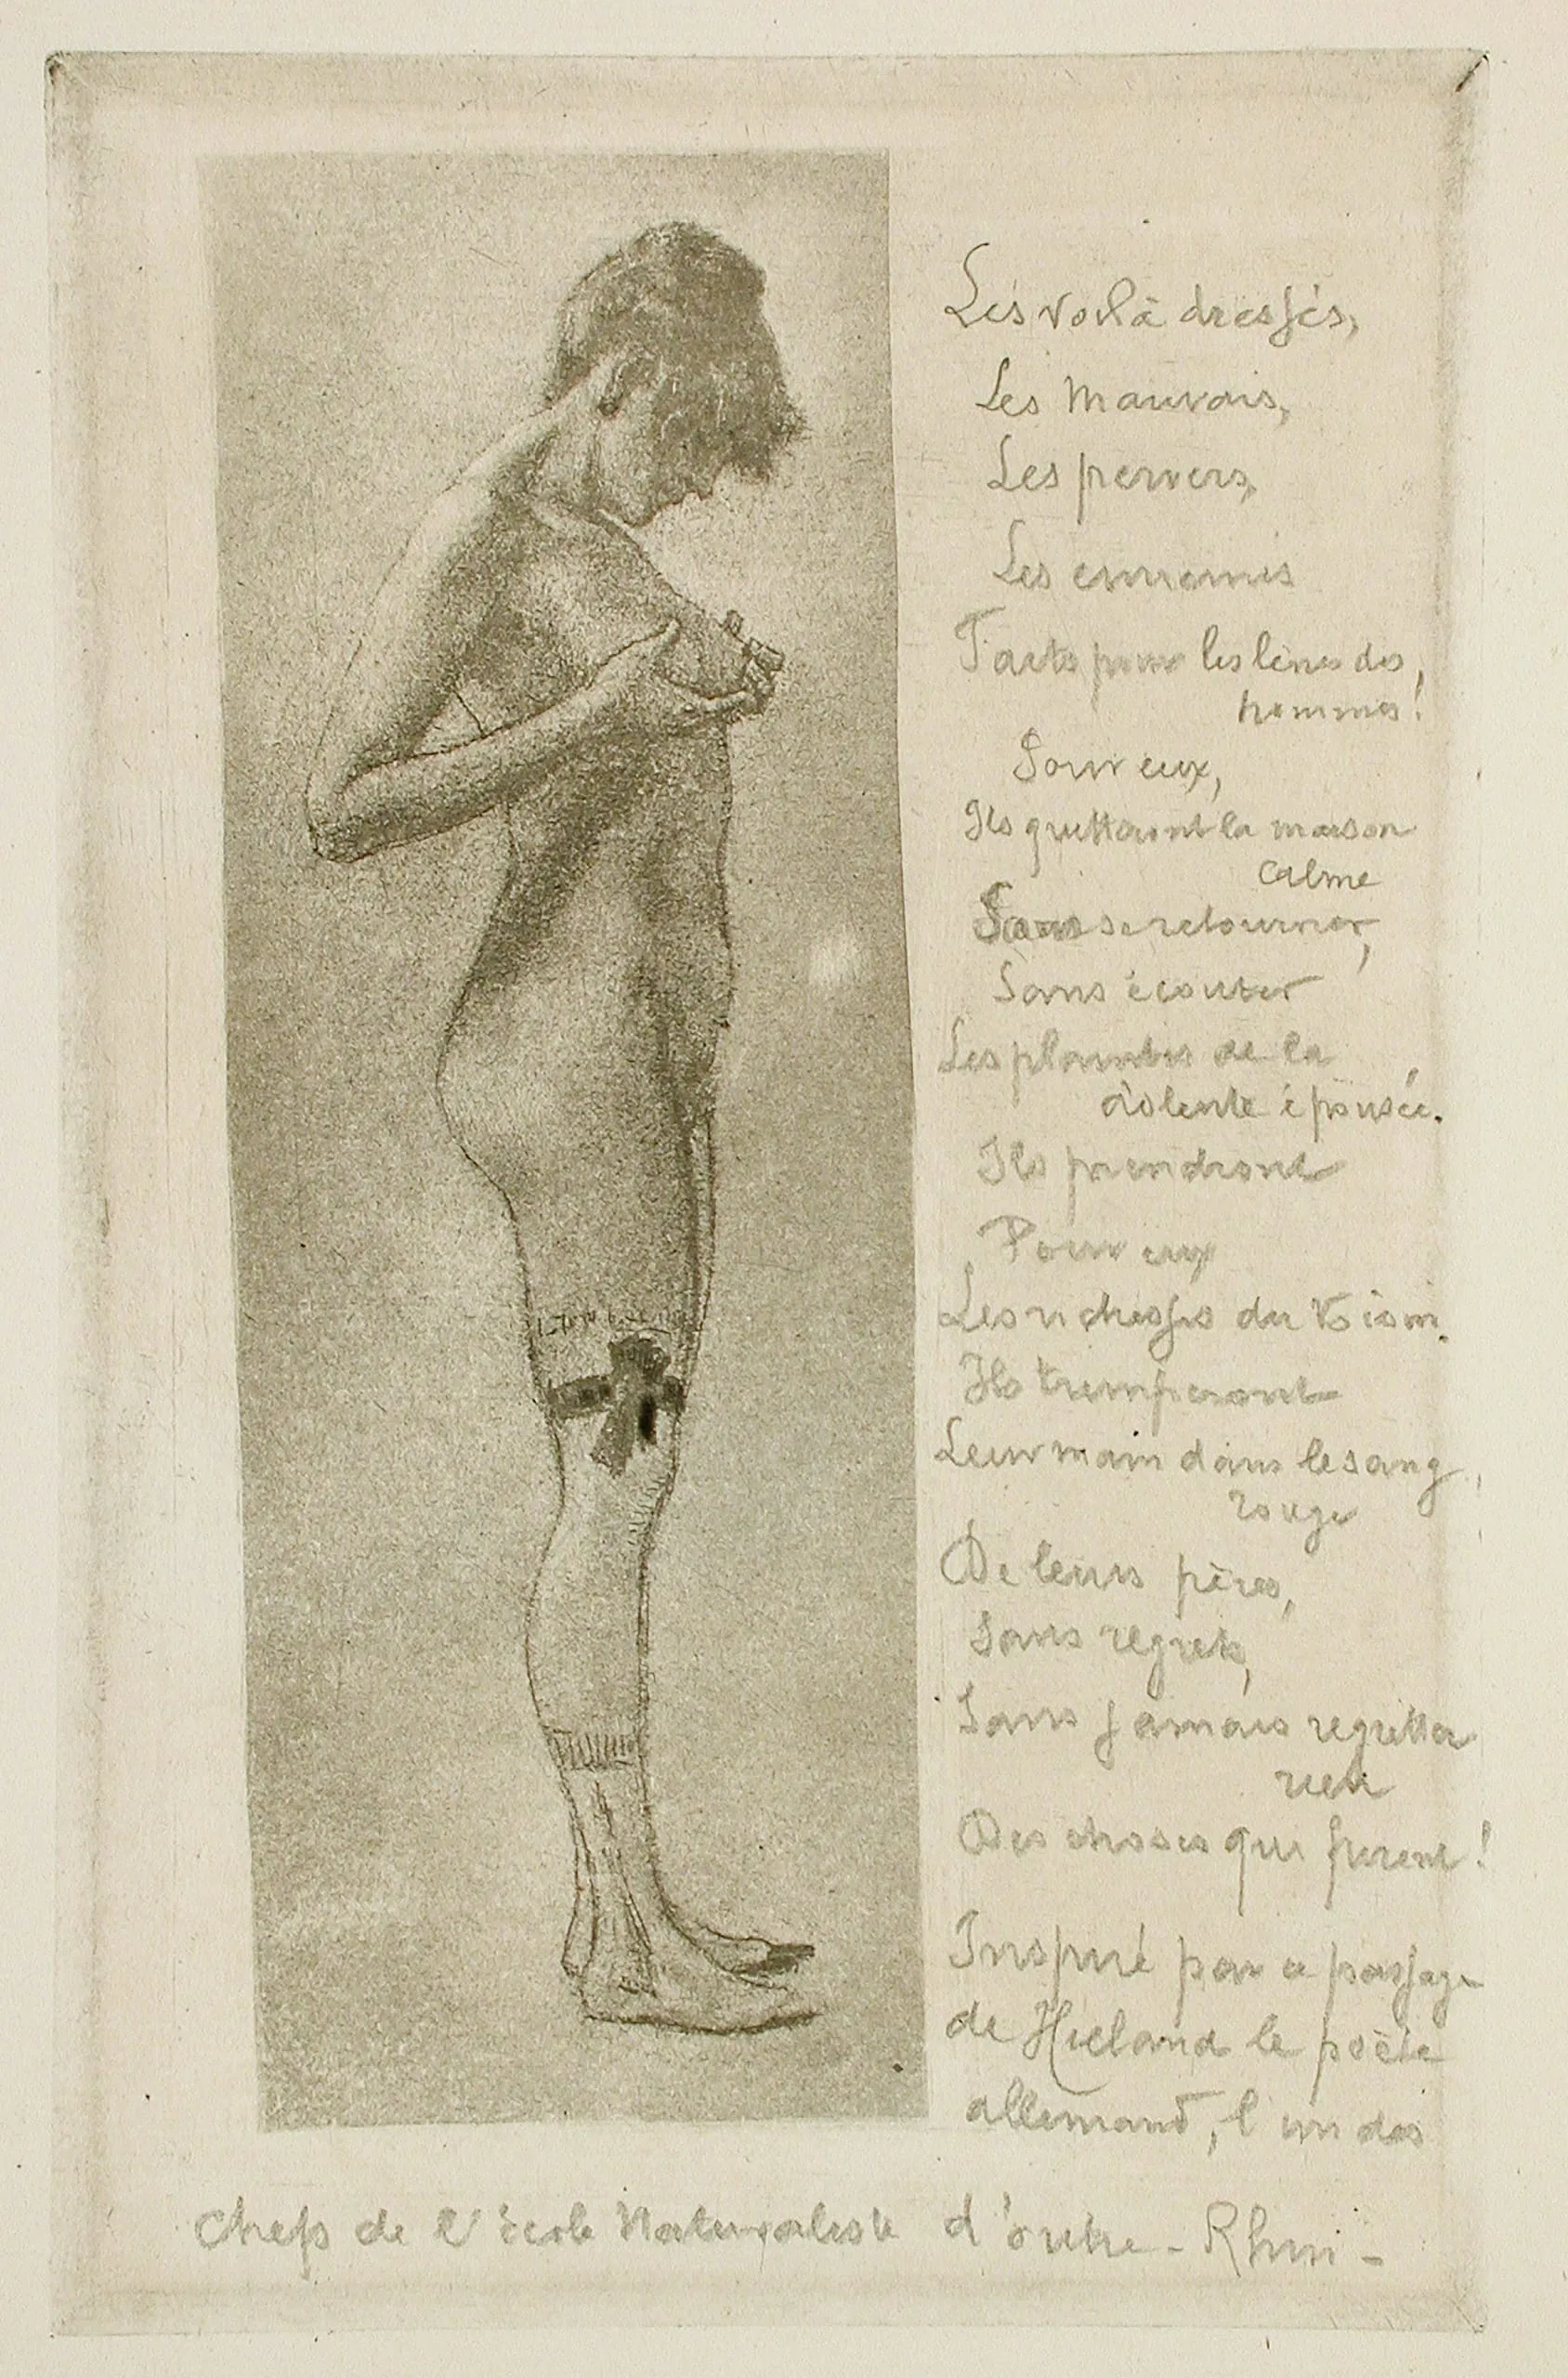 Les voilà dressés,
Les Mauvais,
Les pervers,
Les ennemis
Faits pour les lèvres des,
hommes!
Pour eux,
Ils quitteront la maison
calme
Sans se retourner,
Sans écouter
Les plaintes de la
dolente épousée.
Ils prendront
Pour eux
Les richesses du voisin.
Ils tremperont
Leur main dans le sang,
rouge
De leurs pères,
Sans regrets,
Sans jamais regretter
rien
Des choses qui furent!
Inspiré par ce passage
de Hieland le poète
allemand, l'un des
chefs de l'école Naturaliste d'outre-Rhin-